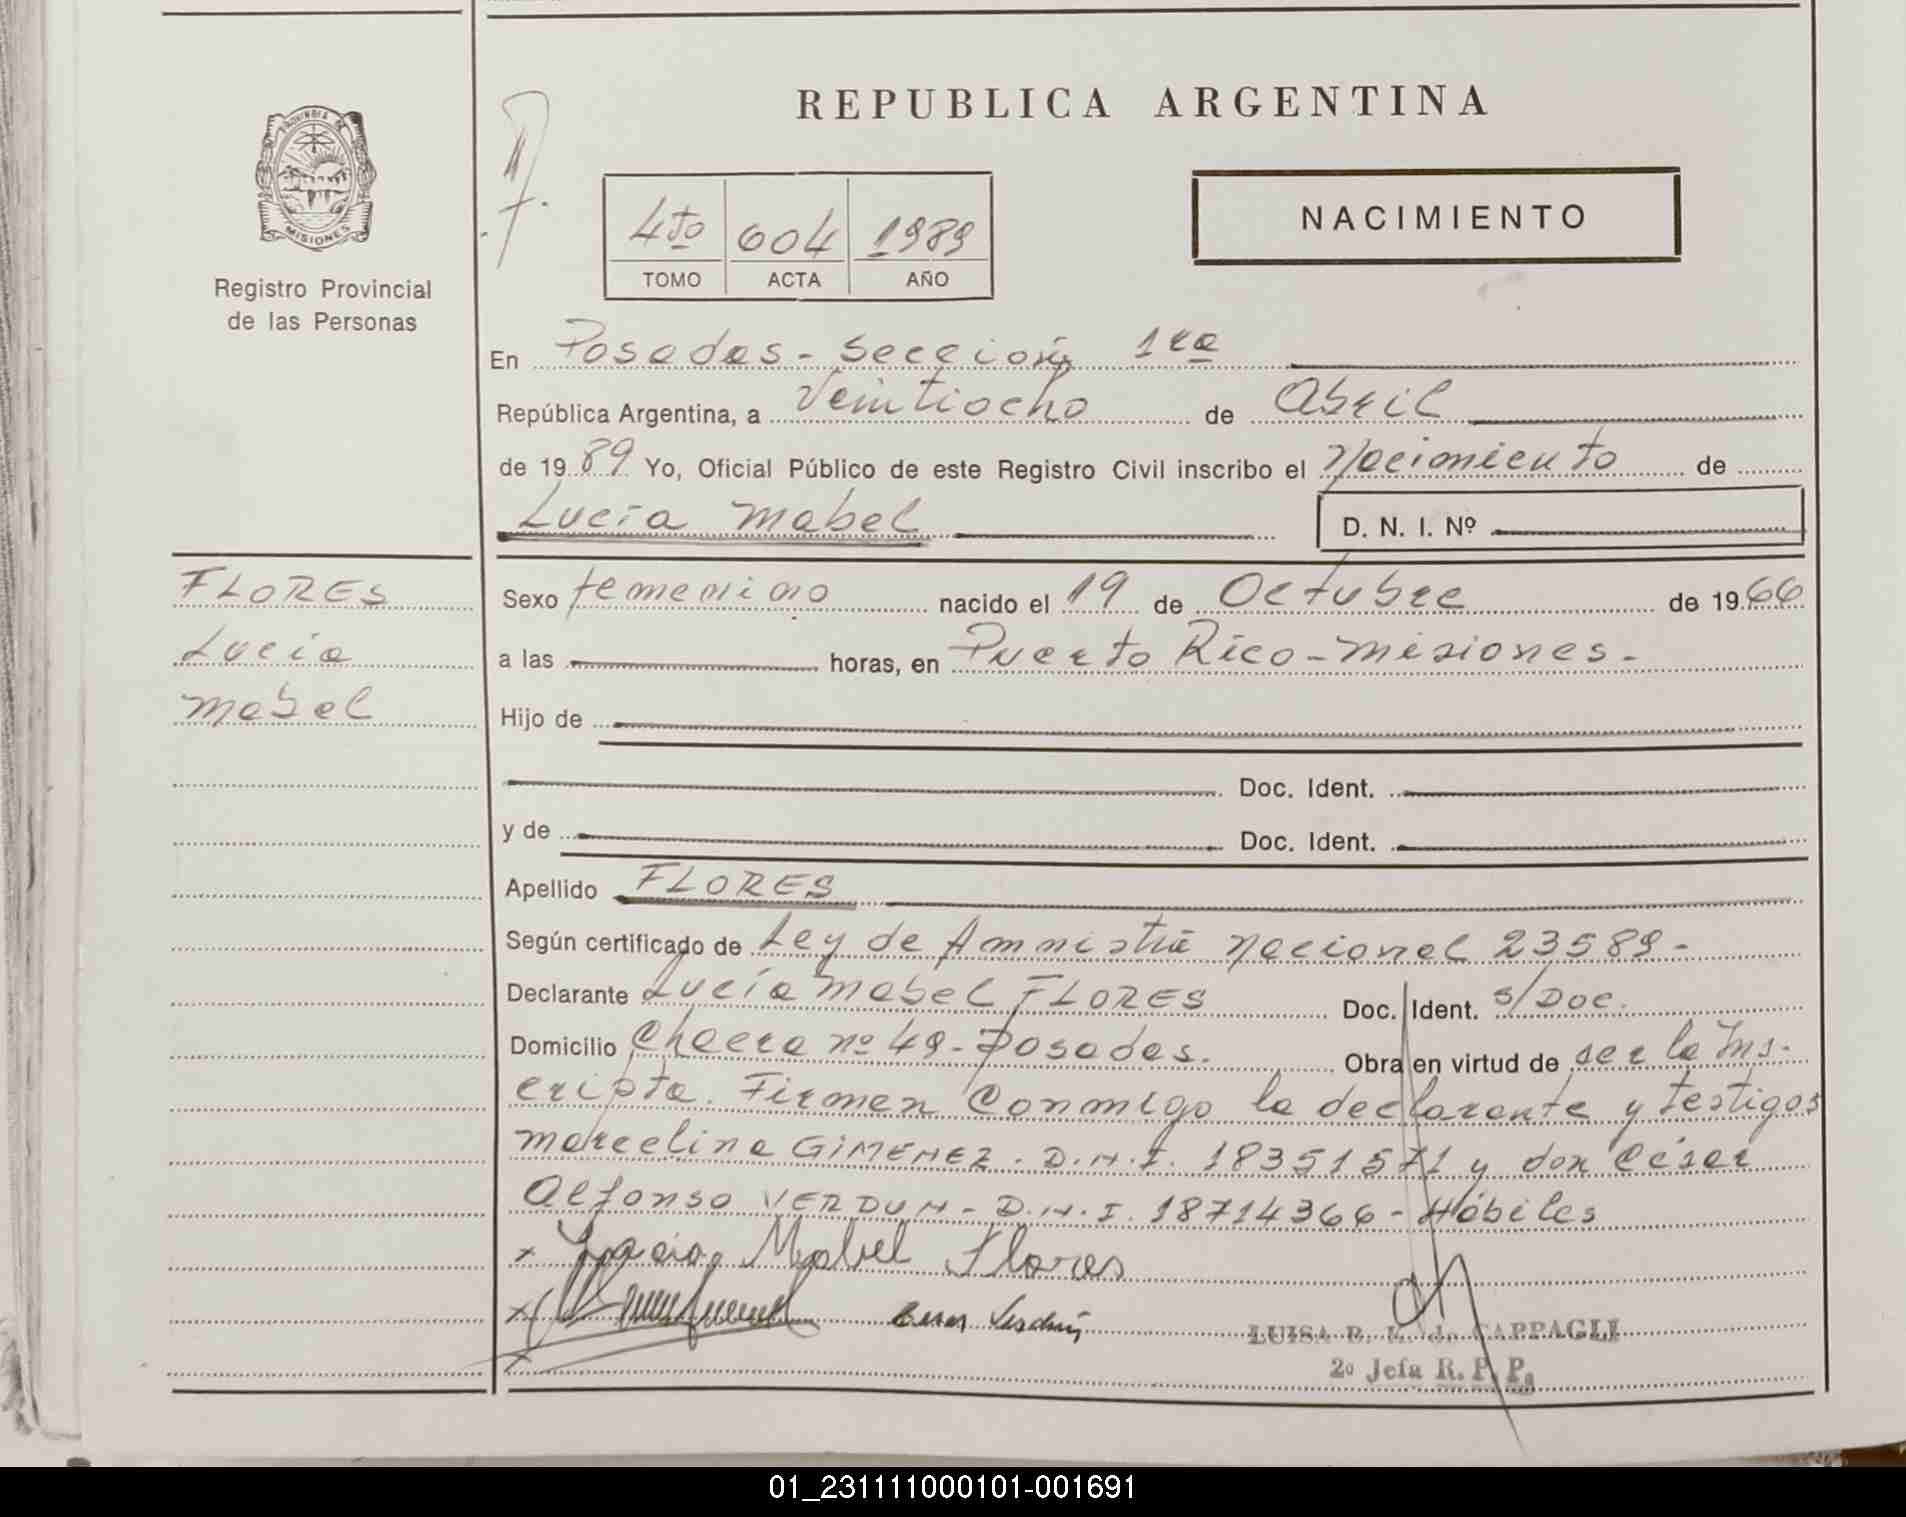 REPUBLICA ARGENTINA
PROVINCIA DE
MISIONES
Registro Provincial
de las Personas
4to 604 1989
TOMO ACTA AÑO
NACIMIENTO
En Posadas - Sección 1ra
República Argentina, a Veintiocho de Abril
de 1989 Yo, Oficial Público de este Registro Civil inscribo el Nacimiento de
Lucía Mabel D. N. I. Nº
FLORES
Lucía
Mabel
Sexo femenino nacido el 19 de Octubre de 1966
a las horas, en Puerto Rico - Misiones.
Hijo de
Doc. Ident.
y de Doc. Ident.
Apellido FLORES
Según certificado de Ley de Amnistía Nacional 23589 -
Declarante Lucía Mabel FLORES Doc. Ident. s/Doc.
Domicilio Chacra nº 49 - Posadas. Obra en virtud de ser la Ins-
cripta. Firman Conmigo la declarante y testigos
Marcelina GIMENEZ. D.N.I. 18351571 y don César
Alfonso VERDUN - D.N.I. 18714366 - Hábiles
x Lucia Mabel Flores
x
x
LUISA B. de CAPPAGLI
2º Jefa R. P. P.
01_231111000101-001691